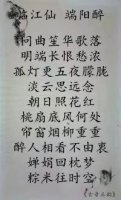 临江仙 端阳醉
问曲笙华歌落
明端长恨愁浓
孤灯更五夜朦胧
淡云思远念
朝日照花红
桃扇底风何处
帘窗烟柳重重
醉人相看不由衷
婵娟回枕梦
粽米往时空